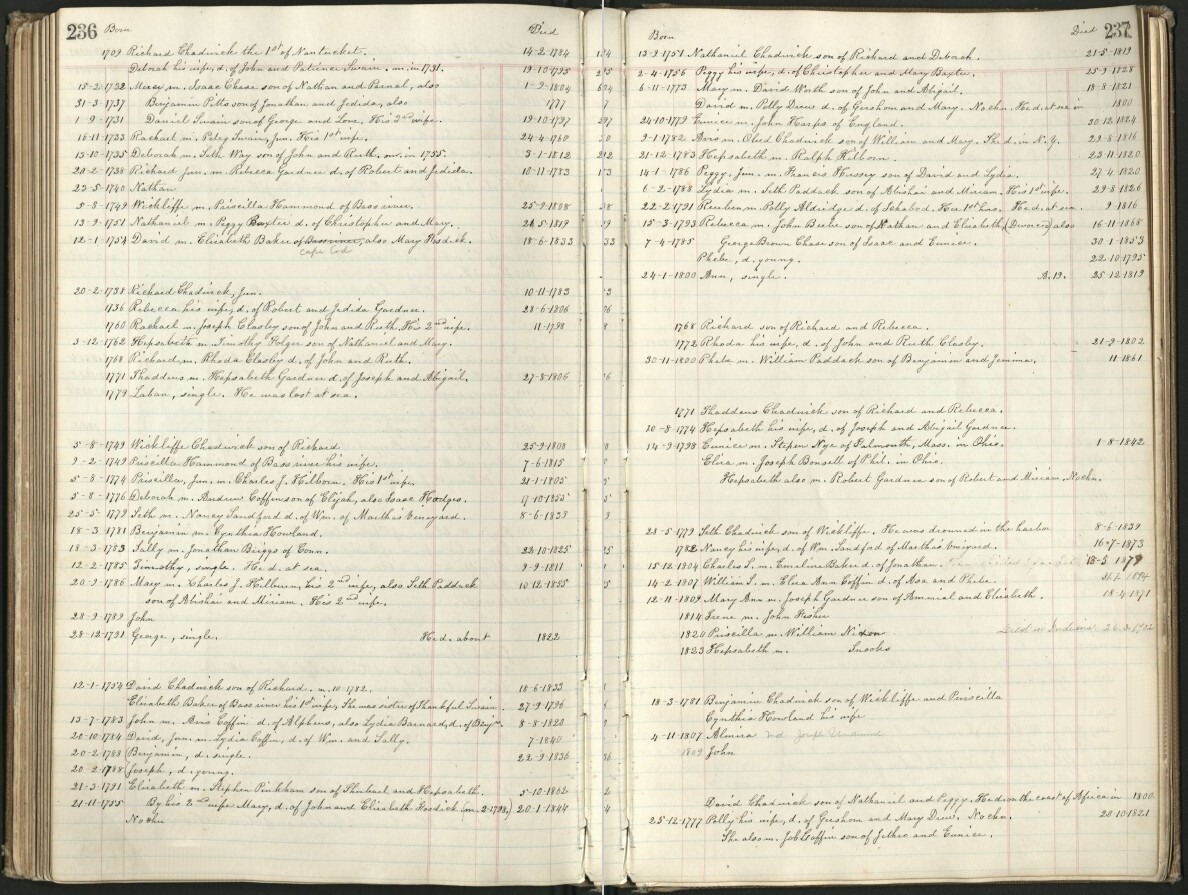 236 Born Died
1709 Richard Chadwick the 1st of Nantucket. 14-2-1784
Deborah his wife, d. of John and Patience Swain. m. in 1731. 19-10-1795
15-2-1732 Mercy m. Isaac Chase son of Nathan and Parnal, also 1-9-1804
31-3-1737 Benjamin Pitts son of Jonathan and Jedida, also 1777
1-9-1731 Daniel Swain son of George and Love. His 2nd wife. 19-10-1797
16-11-1733 Rachael m. Peleg Swain, Jun. His 1st wife. 24-4-1760
13-10-1735 Deborah m. Seth Way son of John and Ruth. m. in 1755. 3-1-1812
20-2-1738 Richard Jun. m. Rebecca Gardner d. of Robert and Jedida. 10-11-1783
23-5-1740 Nathan
5-8-1749 Wickliffe m. Priscilla Hammond of Bass river. 25-9-1808
13-9-1751 Nathaniel m. Peggy Baxter d. of Christopher and Mary. 21-5-1819
12-1-1754 David m. Elizabeth Baker of Bass river, also Mary Hosdick. 18-6-1833
Cape Cod
20-2-1738 Richard Chadwick, Jun. 10-11-1783
1736 Rebecca his wife, d. of Robert and Jedida Gardner. 28-6-1806
1760 Rachael m. Joseph Clasby son of John and Ruth. His 2nd wife. 11-1798
3-12-1762 Hepsabeth m. Timothy Folger son of Nathaniel and Mary.
1768 Richard m. Rhoda Clasby d. of John and Ruth.
1771 Thaddeus m. Hepsabeth Gardner d. of Joseph and Abigail. 27-8-1806
1779 Laban, single. He was lost at sea.
5-8-1749 Wickliffe Chadwick son of Richard 25-9-1808
9-2-1749 Priscilla Hammond of Bass river his wife. 7-6-1815
5-8-1774 Priscilla, Jun. m. Charles J. Hilborn. His 1st wife. 21-1-1805
5-8-1776 Deborah m. Andrew Coffin son of Elijah, also Isaac Hodges. 17-10-1855
25-5-1779 Seth m. Nancy Sandford d. of Wm. of Martha's Vineyard. 8-6-1839
18-3-1781 Benjamin m. Cynthia Howland.
18-3-1783 Sally m. Jonathan Briggs of Conn. 22-10-1825
12-2-1785 Timothy, single. He d. at sea. 9-9-1811
20-9-1786 Mary m. Charles J. Hilburn, his 2nd wife, also Seth Paddack 10-12-1855
son of Abishai and Miriam. His 2nd wife.
28-9-1789 John
28-12-1791 George, single. He d. about 1822
12-1-1754 David Chadwick son of Richard. m. 10-1782. 18-6-1833
Elizabeth Baker of Bass river his 1st wife. She was sister of Thankful Swain. 27-9-1796
13-7-1783 John m. Avis Coffin d. of Alpheus, also Lydia Barnard, d. of Benjn. 8-8-1820
20-10-1784 David, Jun. m. Lydia Coffin, d. of Wm. and Sally. 7-1840
20-2-1788 Benjamin, d. single. 22-9-1836
20-2-1788 Joseph, d. young.
21-3-1791 Elizabeth m. Stephen Pinkham son of Shubael and Hepsabeth. 5-10-1862
21-11-1755 By his 2nd wife Mary, d. of John and Elizabeth Hosdick (m. 2-1798) 20-1-1844
No chn
Born Died 237
13-9-1751 Nathaniel Chadwick son of Richard and Deborah. 21-5-1819
2-4-1756 Peggy his wife, d. of Christopher and Mary Baxter. 25-9-1828
6-11-1773 Mary m. David Worth son of John and Abigail. 18-8-1821
David m. Polly Drew d. of Gershom and Mary. No chn. He d. at sea in 1800
24-10-1779 Eunice m. John Harps of England. 20-12-1824
9-1-1782 Avis m. Obed Chadwick son of William and Mary. She d. in N.Y. 29-8-1816
21-12-1783 Hepsabeth m. Ralph Hilborn. 23-11-1820
14-1-1786 Peggy, Jun. m. Francis Hussey son of David and Lydia. 27-4-1820
6-2-1788 Lydia m. Seth Paddack son of Abishai and Miriam. His 1st wife. 29-8-1826
22-2-1791 Reuben m. Polly Aldridge d. of Ichabod. Her 1st hus. He d. at sea. 9-1816
15-3-1793 Rebecca m. John Beebe son of Nathan and Elizabeth, (Divorced) also 16-11-1868
7-4-1785 George Brown Chase son of Isaac and Eunice. 30-1-1853
Phebe, d. young. 22-10-1795
24-1-1800 Ann, single. A. 19. 25-12-1819
1768 Richard son of Richard and Rebecca.
1772 Rhoda his wife, d. of John and Ruth Clasby. 21-9-1802
30-11-1800 Phebe m. William Paddack son of Benjamin and Jemima. 11-1861
1771 Thaddeus Chadwick son of Richard and Rebecca.
10-8-1774 Hepsabeth his wife, d. of Joseph and Abigail Gardner.
14-9-1798 Eunice m. Stepen Nye of Falmouth, Mass. in Ohio. 1-8-1842
Eliza m. Joseph Bonsell of Phil. in Ohio.
Hepsabeth also m. Robert Gardner son of Robert and Miriam, No chn.
28-5-1779 Seth Chadwick son of Wickliffe. He was drowned in the harbor 8-6-1839
1782 Nancy his wife, d. of Wm. Sandford of Martha's Vineyard. 16-7-1873
15-12-1804 Charles S. m. Emeline Baker d. of Jonathan. 18-3 1879
14-2-1807 William S. m. Eliza Ann Coffin d. of Asa and Phebe.
12-11-1809 Mary Ann m. Joseph Gardner son of Ammial and Elizabeth. 18-4-1871
1814 Irene m. John Fisher
1820 Priscilla m. William Nixon Died in Indiana
1823 Hepsabeth m. Snooks
18-3-1781 Benjamin Chadwick son of Wickliffe and Priscilla
Cynthia Howland his wife
4-11-1807 Almira md Joseph
1809 John
David Chadwick son of Nathaniel and Peggy. He d. on the coast of Africa in 1800.
25-12-1777 Polly his wife, d. of Gershom and Mary Drew. No chn. 20-10-1821
She also m. Job Coffin son of Jethro and Eunice.